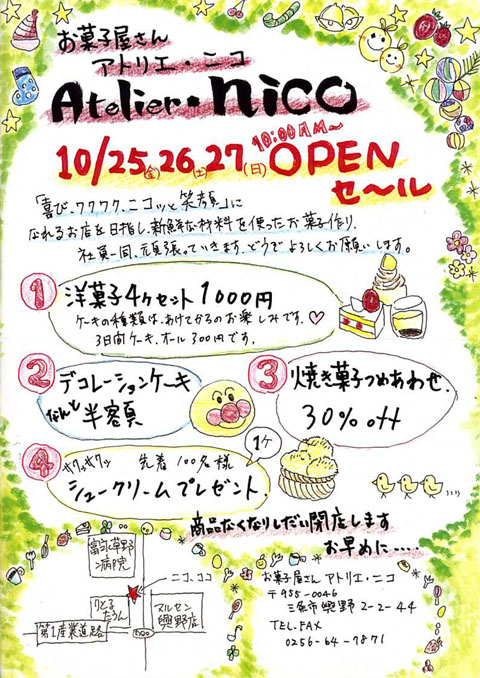 お菓子屋さん
アトリエ・ニコ
Atelier・nico
10:00AM〜
10/25(金)26(土)27(日)OPEN
セ〜ル
「喜び・ワクワク、ニコッと笑顔」に
なれるお店を目指し、新鮮な材料を使ったお菓子作り、
社員一同、頑張っていきます。どうぞよろしくお願いします。
1 洋菓子4ヶセット1000円
ケーキの種類は、あけてからのお楽しみです。♡
3日間ケーキ、オール300円です。
2 デコレーションケーキ
なんと 半額
3 焼き菓子つめあわせ、
30% off
4 サクッサクッ 先着100名様
1ケ
シュークリームプレゼント、
商品なくなりしだい閉店します
お早めに…
富永草野
病院
ニコ、ココ
りとる
たうん
マルセン
興野店
第1産業道路
お菓子屋さん アトリエ・ニコ
〒955-0046
三条市興野2-2-44
TEL.FAX
0256-64-7871